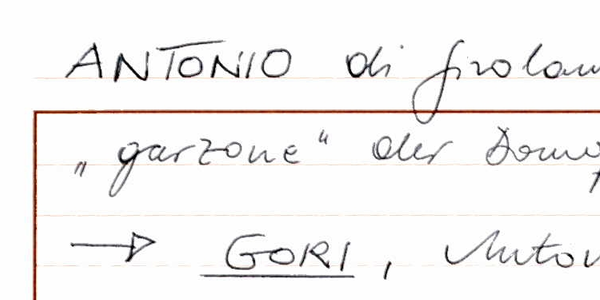 ANTONIO di Girolam
„garzone“ der Domo
→ GORI, Anton